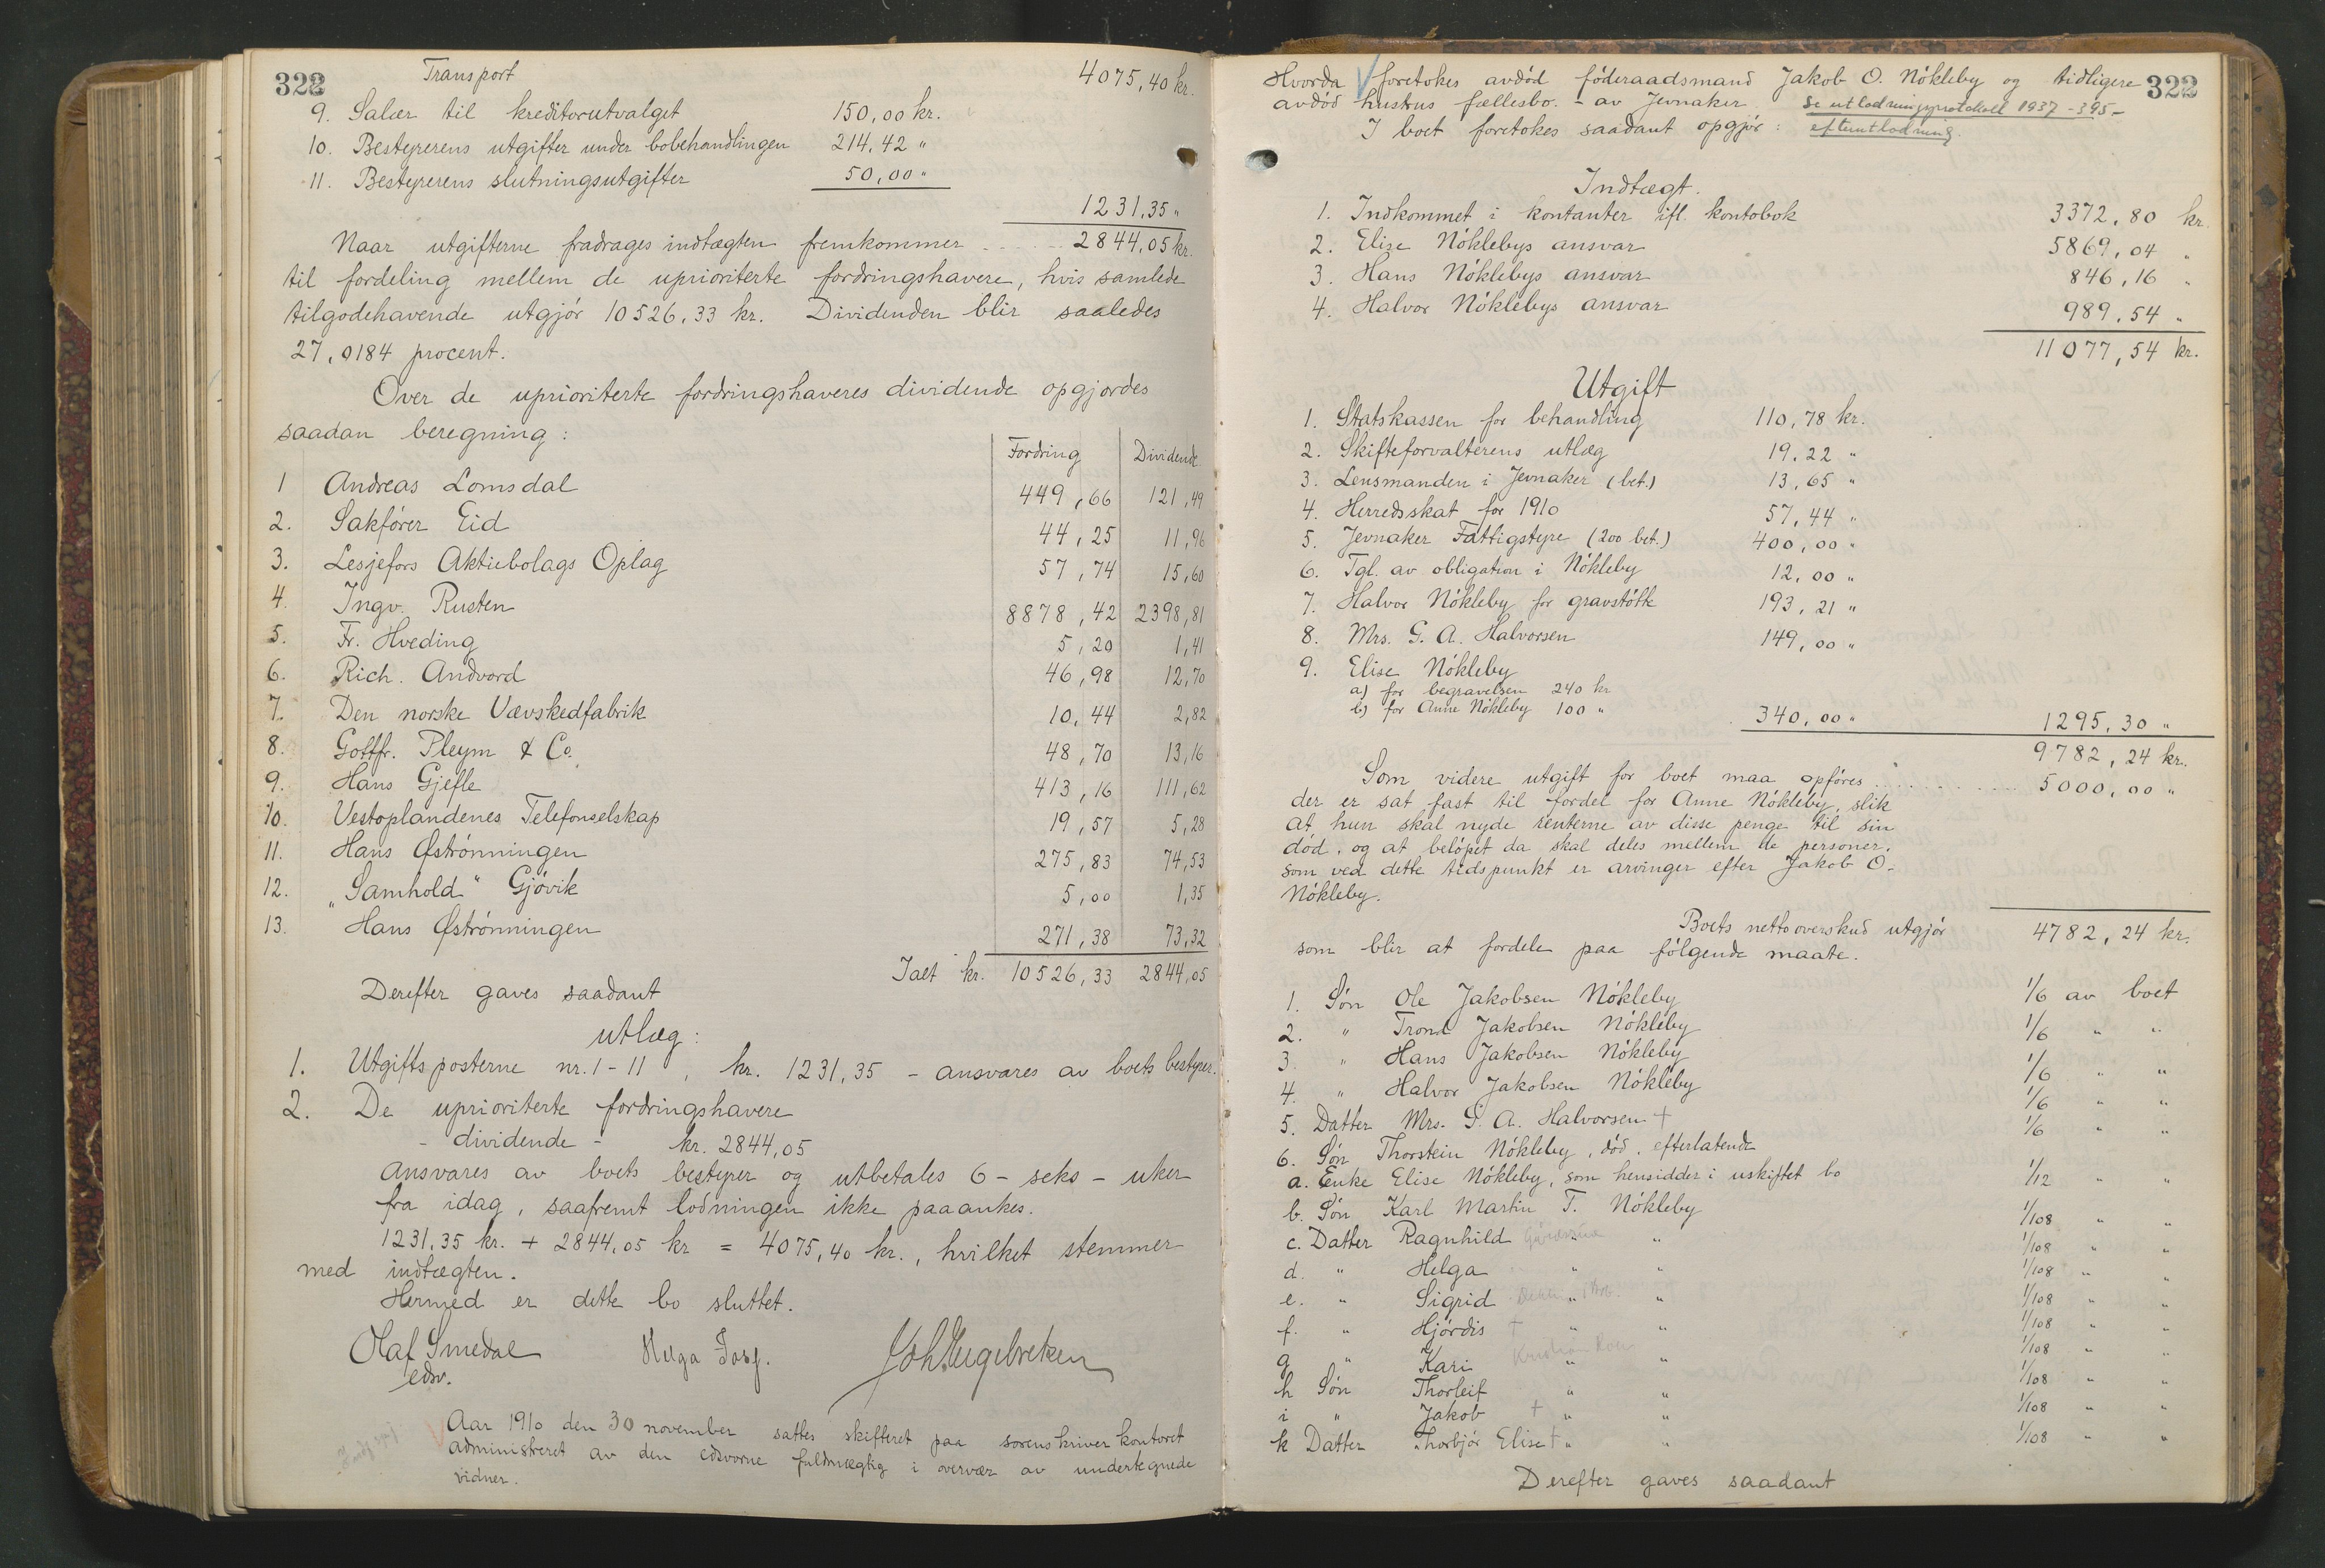 322
Transport 4075,40 kr.
9. Salær til kreditorutvalget 150,00 kr.
10. Bestyrerens utgifter under bobehandlingen 214,42 "
11. Bestyrerens slutningsutgifter 50,00 "
1231,35 "
Naar utgifterne fradrages indtægten fremkommer 2844,05 kr.
til fordeling mellem de uprioriterte fordringshavere, hvis samlede
tilgodehavende utgjør 10526.33 kr. Dividenden blir saaledes
27,0184 procent.
Over de uprioriterte fordringshaveres dividende opgjordes
saadan beregning:
Fordring Dividende
1 Andreas Lomsdal 449,66 121,49
2. Sakfører Eid 44,25 11,96
3. Lesjefors Aktiebolags Oplag 57,74 15,60
4. Ingv. Rusten 8878,42 2398,81
5. Fr. Hveding 5,20 1,41
6. Rich. Andvord 46,98 12,70
7. Den norske Vævskedfabrik 10,44 2,82
8. Gottfr. Pleym & Co. 48,70 13,16
9. Hans Gjefle 413,16 111,62
10. Vestoplandenes Telefonselskap 19,57 5,28
11. Hans Østrønningen 275,83 74,53
12. "Samhold" Gjøvik 5,00 1,35
13. Hans Østrønningen 271,38 73,32
Ialt kr. 10526,33 2844,05
Derefter gaves saadant
utlæg:
1. Utgiftsposterne nr. 1-11, kr. 1231,35 - ansvares av boets bestyrer.
2. De uprioriterte fordringshavere
- dividende - kr. 2844,05
ansvares av boets bestyrer og utbetales 6 - seks - uker
fra idag, saafremt lodningen ikke paaankes.
1231,35 kr. + 2844,05 kr = 4075,40 kr., hvilket stemmer
med indtægten.
Hermed er dette bo sluttet.
Olaf Smedal Helga
edsv.
Aar 1910 den 30 november sattes skifteret paa sorenskriverkontoret
administreret av den edsvorne fuldmægtig i overvær av undertegnede
vidner.
322
Hvorda foretokes avdød føderaadsmand Jakob O. Nøkleby og tidligere
avdød hustrus fællesbo. - av Jevnaker. Se utlodningsprotokoll 1937 - 395 -
I boet foretokes saadant opgjør: efterutlodning.
Indtægt.
1. Indkommet i kontanter ifl. kontobok 3372,80 kr.
2. Elise Nøklebys ansvar 5869,04 "
3. Hans Nøklebys ansvar 846,16 "
4. Halvor Nøklebys ansvar 989,54 "
11077,54 kr.
Utgift
1. Statskassen for behandling 110,78 kr.
2. Skifteforvalterens utlæg 19.22 "
3. Lensmanden i Jevnaker (bet.) 13,65 "
4. Herredsskat for 1910 57,44 "
5. Jevnaker Fattigstyre (200 bet.) 400,00 "
6. Tgl. av obligation i Nøkleby 12,00 "
7. Halvor Nøkleby for gravstøtte 193,21 "
8. Mrs. G. A. Halvorsen 149,00 "
9. Elise Nøkleby
a) for begravelsen 240 kr
b) for Anne Nøkleby 100 " 340,00 " 1295,30 "
9782,24 kr.
Som videre utgift for boet maa opføres 5000,00 "
der er sat fast til fordel for Anne Nøkleby, slik
at hun skal nyde renterne av disse penge til sin
død, og at beløpet da skal deles mellem de personer,
som ved dette tidspunkt er arvinger efter Jakob O.
Nøkleby.
Boets nettooverskud utgjør 4782,24 kr.
som blir at fordele paa følgende maate.
1. Søn Ole Jakobsen Nøkleby 1/6 av boet
2. " Trond Jakobsen Nøkleby 1/6 " "
3. " Hans Jakobsen Nøkleby 1/6 " "
4. " Halvor Jakobsen Nøkleby 1/6 " "
5. Datter Mrs. G. A. Halvorsen + 1/6 " "
6. Søn Thorstein Nøkleby, død, efterlatende
a. Enke Elise Nøkleby, som hensidder i uskiftet bo 1/12 " "
b. Søn Karl Martin T. Nøkleby 1/108 " "
c. Datter Ragnhild " 1/108 " "
d. " Helga " " 1/108 " "
e. " Sigrid " " 1/108 " "
f. " Hjørdis + " " 1/108 " "
g " Kari " " 1/108 " "
h Søn Thorleif " " 1/108 " "
i " Jakob + " " 1/108 " "
k Datter Thorbjør Elise + " " 1/108 " "
Derefter gaves saadant